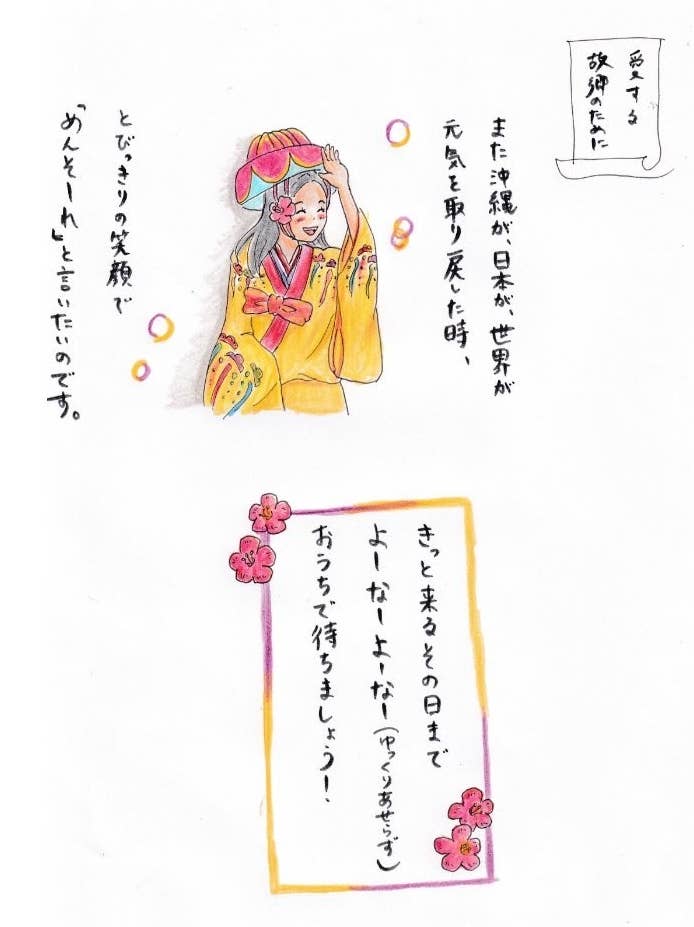 愛する
故郷のために
また沖縄が、日本が、世界が
元気を取り戻した時、
とびっきりの笑顔で
「めんそーれ」と言いたいのです。
きっと来るその日まで
よーなーよーなー(ゆっくりあせらず)
おうちで待ちましょう!